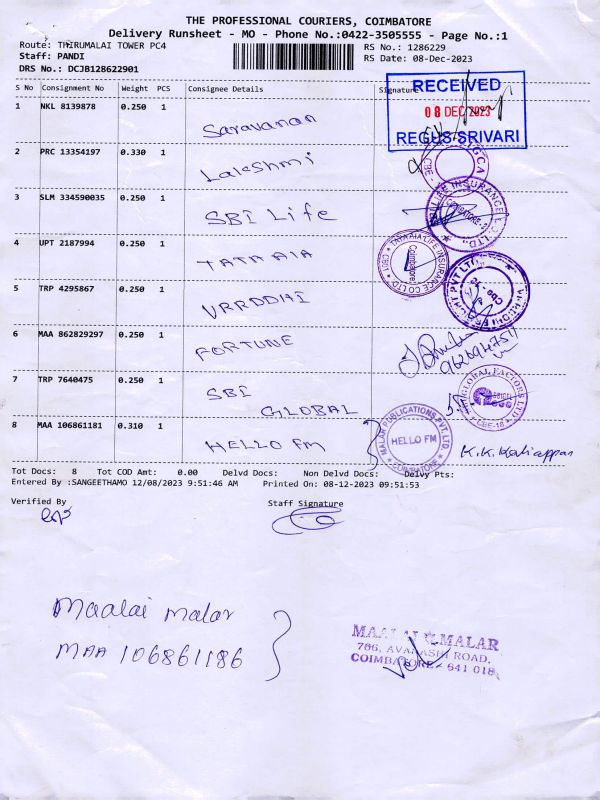 THE PROFESSIONAL COURIERS, COIMBATORE
Delivery Runsheet - MO - Phone No.:0422-3505555 - Page No.:1
Route: THIRUMALAI TOWER PC4 RS No.: 1286229
Staff: PANDI RS Date: 08-Dec-2023
DRS No.: DCJB128622901
S No Consignment No Weight PCS Consignee Details Signature
RECEIVED
08 DEC 2023
REGUS SRIVARI
1 NKL 8139878 0.250 1 Saravanan
2 PRC 13354197 0.330 1 Lakshmi
3 SLM 334590035 0.250 1 SBI Life
4 UPT 2187994 0.250 1 TATA AIA
TATA AIA LIFE INSURANCE CO LTD
Coimbatore
5 TRP 4295867 0.250 1 VRRDDHI
6 MAA 862829297 0.250 1 FORTUNE
7 TRP 7640475 0.250 1 SBI
GLOBAL
GLOBAL FACTORS LTD
CBE-18
8 MAA 106861181 0.310 1 HELLO FM
MALAR PUBLICATIONS PVT. LTD
HELLO FM
COIMBATORE
K.K. Kaliappan
Tot Docs: 8 Tot COD Amt: 0.00 Delvd Docs: Non Delvd Docs: Delvy Pts:
Entered By :SANGEETHAMO 12/08/2023 9:51:46 AM Printed On: 08-12-2023 09:51:53
Verified By Staff Signature
Maalai Malar
MAA 106861186
MAALAI MALAR
766, AVANASHI ROAD,
COIMBATORE - 641 018